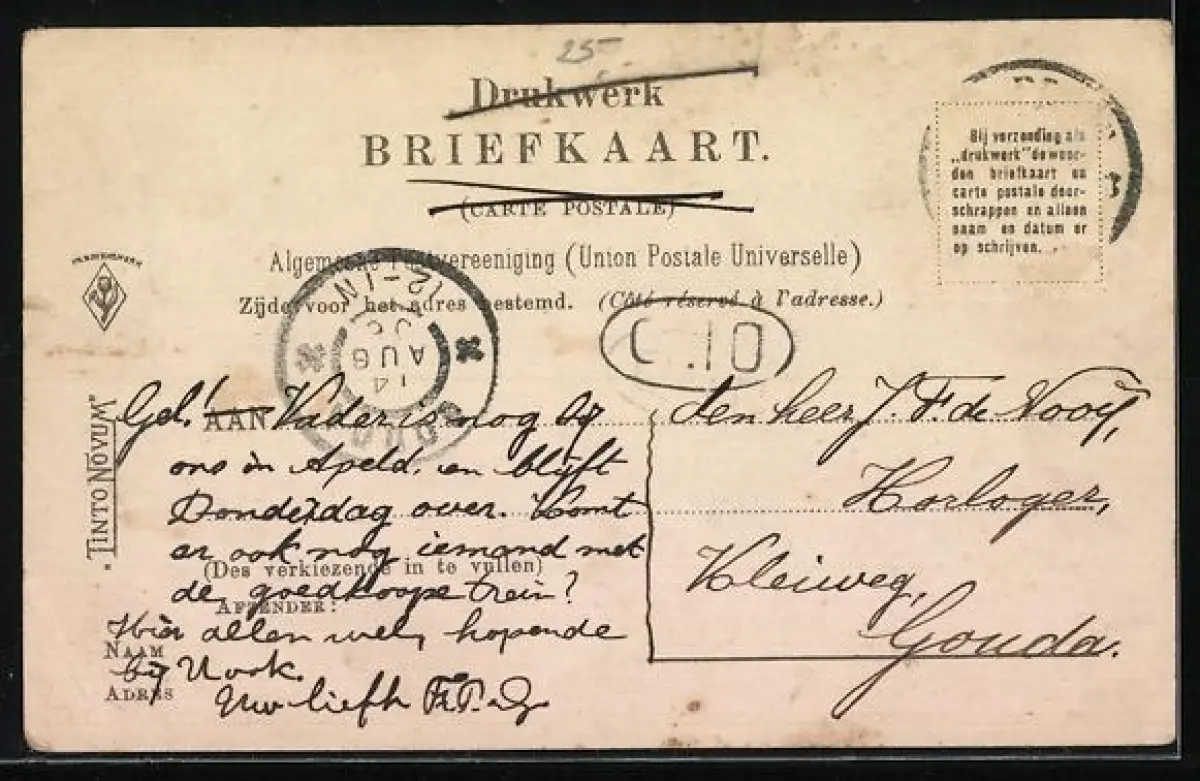 25-
Drukwerk
BRIEFKAART.
(CARTE POSTALE)
Algemeene Postvereeniging (Union Postale Universelle)
Zijde voor het adres bestemd. (Côté réservé à l'adresse.)
Bij verzending als
„drukwerk" de woor-
den briefkaart en
carte postale door-
schrappen en alleen
naam en datum er
op schrijven.
12-1N
AUG
14
GOUDA
"TINTO NOVUM"
AAN
Gel! Vader is nog by
ons in Apeld. en blyft
Donderdag over. Komt
er ook nog iemand met
de goedkoope trein?
Hier allen wel, hopende
by U ook.
Uw liefh
(Des verkiezende in te vullen)
AFZENDER:
NAAM
ADRES
den heer J. F. de Nooy,
Horloger,
Kleiweg,
Gouda.